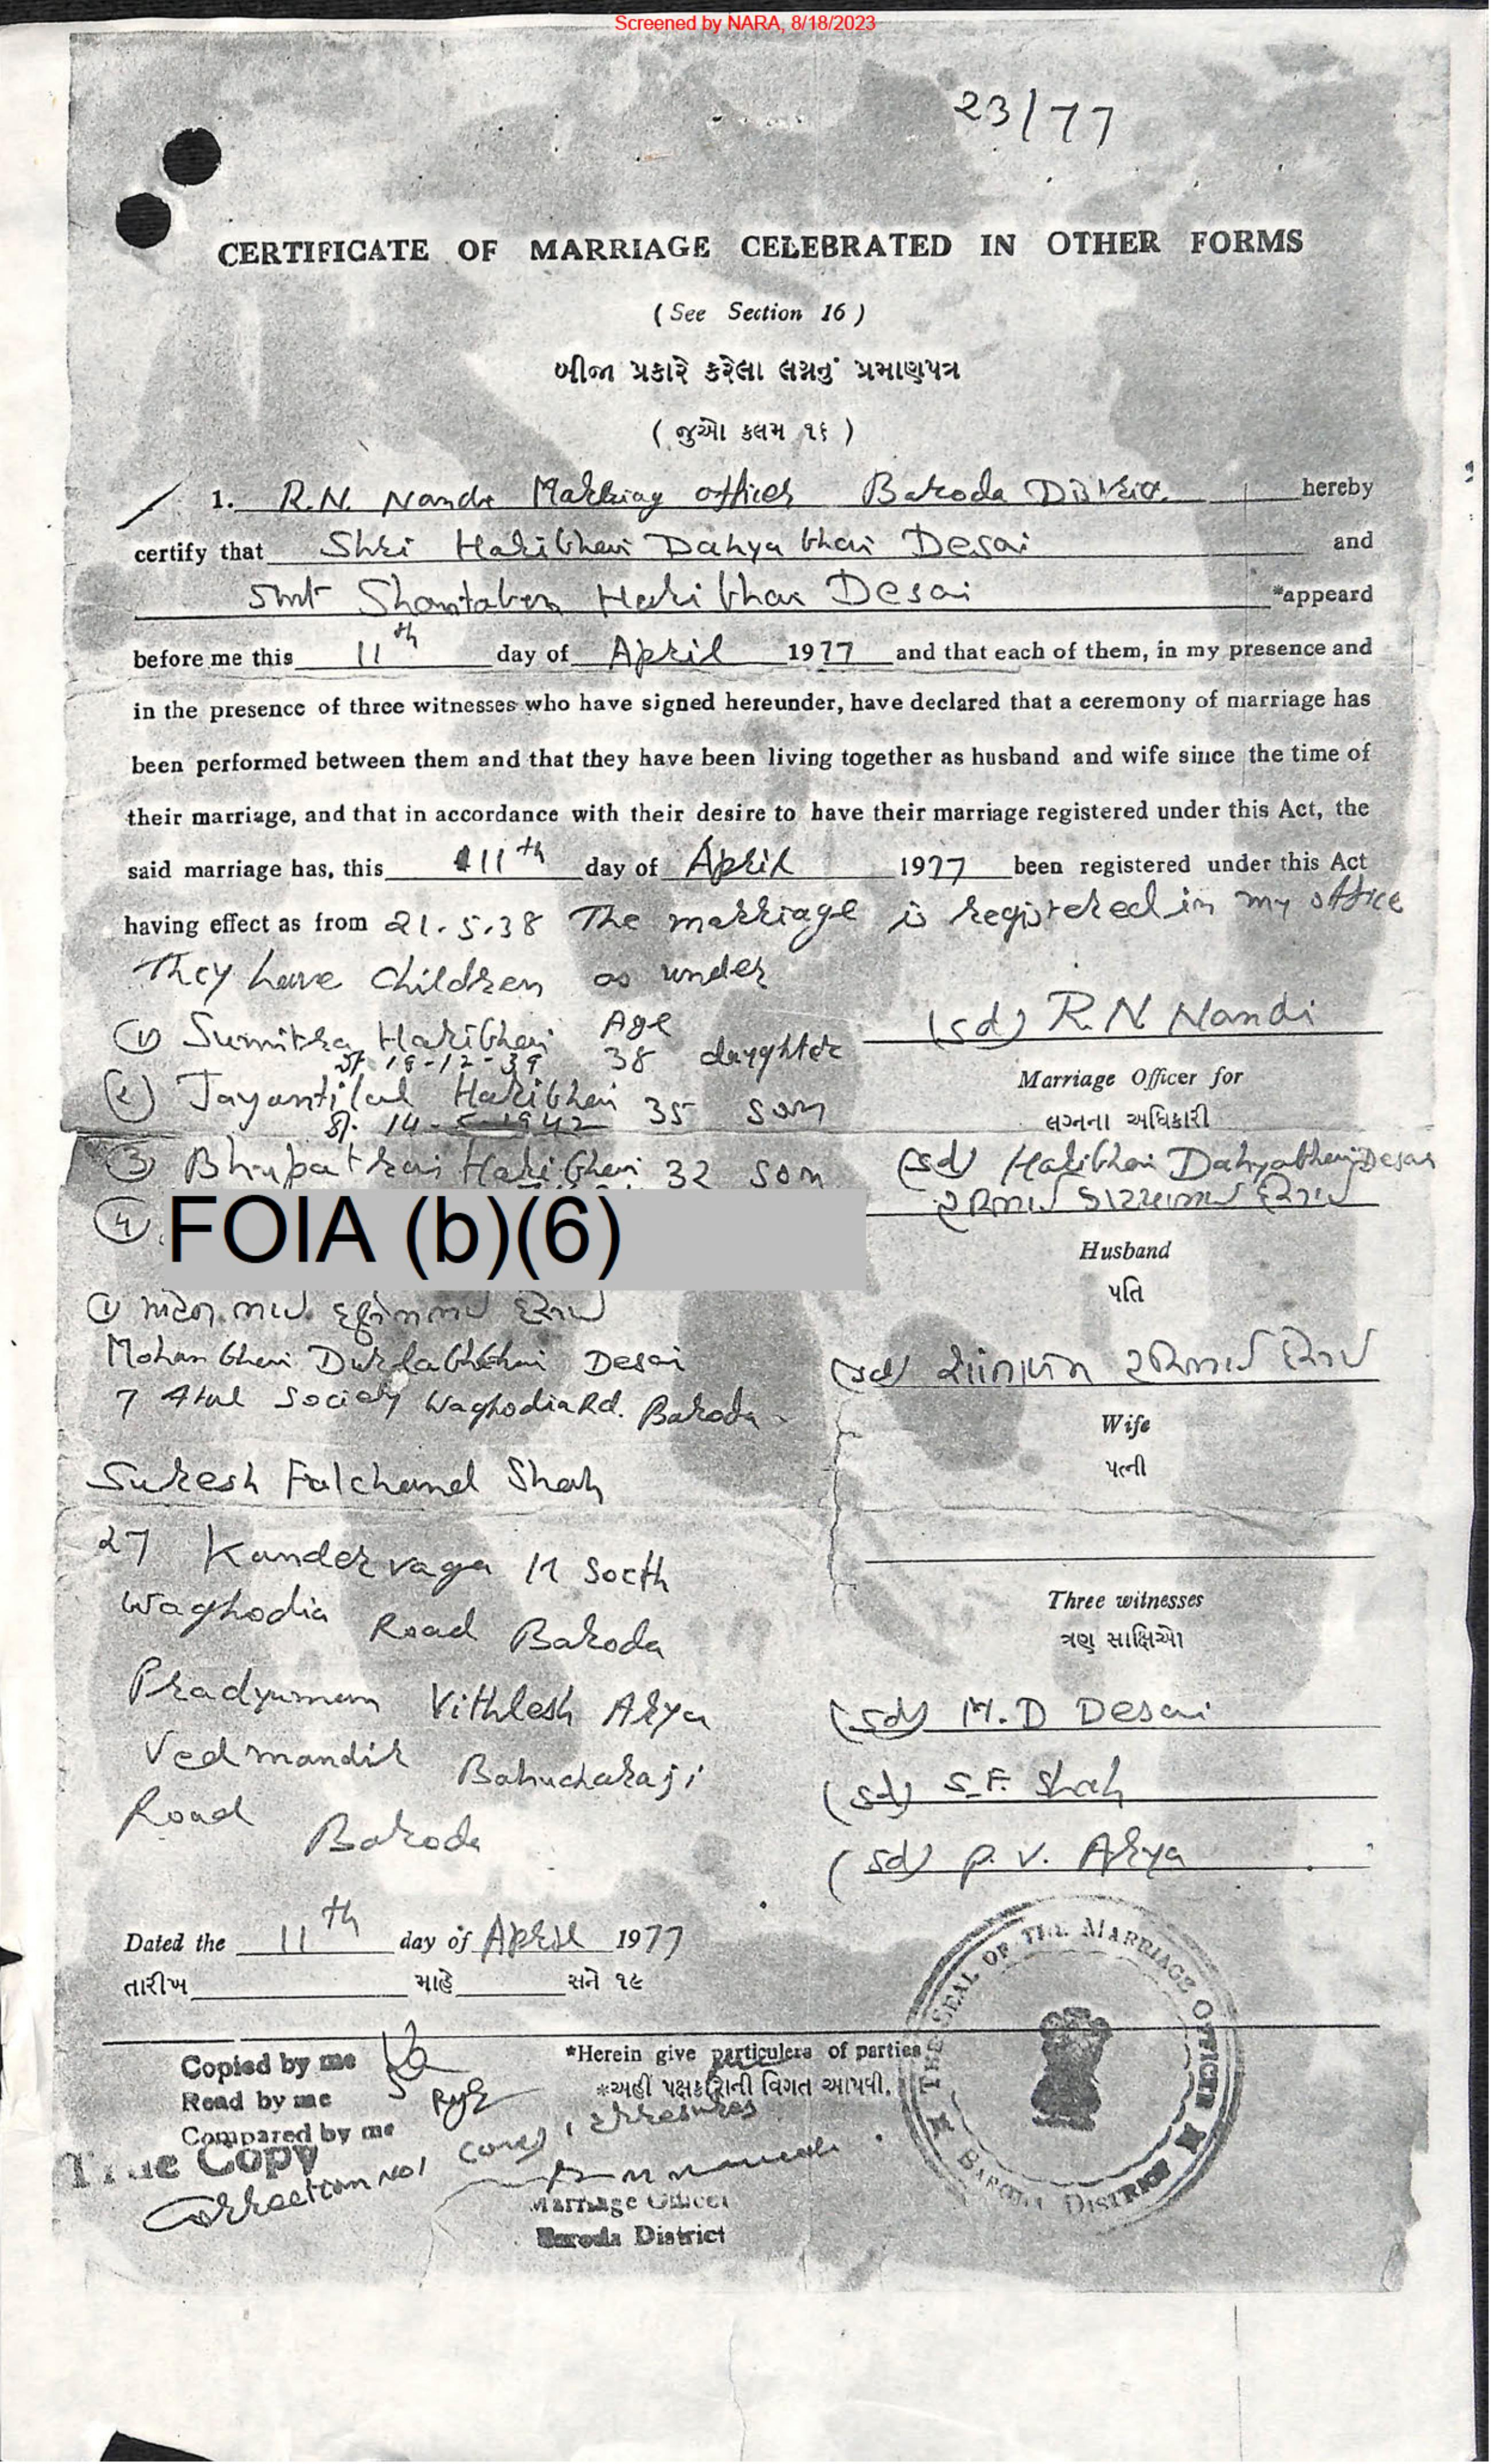 Screened by NARA, 8/18/2023
23/77
CERTIFICATE OF MARRIAGE CELEBRATED IN OTHER FORMS
( See Section 16 )
બીજા પ્રકારે કરેલા લગ્નનું પ્રમાણપત્ર
( જુઓ કલમ ૧૬ )
1. R.N. Nandi Marriag officer Baroda District. hereby
certify that Shri Haribhai Dahyabhai Desai and
Smt Shantaben Haribhai Desai *appeard
before me this 11th day of April 1977 and that each of them, in my presence and
in the presence of three witnesses who have signed hereunder, have declared that a ceremony of marriage has
been performed between them and that they have been living together as husband and wife since the time of
their marriage, and that in accordance with their desire to have their marriage registered under this Act, the
said marriage has, this 11th day of April 1977 been registered under this Act
having effect as from 21.5.38 The marriage is registered in my office
They have children as under
(1) Sumitra Haribhai Age 38 daughter
19-12-39
(2) Jayantilal Haribhai 35 son
14-5-1942
(3) Bhupatrai Haribhai 32 son
(4)
FOIA (b)(6)
(sd) R.N Nandi
Marriage Officer for
લગ્નના અધિકારી
(sd) Haribhai Dahyabhai Desai
હરિભાઈ ડાહ્યાભાઈ દેસાઈ
Husband
પતિ
(1) મોહનભાઈ દુર્લભભાઈ દેસાઈ
Mohanbhai Durlabhbhai Desai
7 Atul Society Waghodia Rd. Baroda
(sd) શાંતાબેન હરિભાઈ દેસાઈ
Wife
પત્ની
Suresh Falchand Shah
27 Kunder vaga
Waghodia Road Baroda
Pradyuman Vithlesh Arya
Vedmandir Bahucharaji
Road Baroda
Three witnesses
ત્રણ સાક્ષિઓ
(sd) M.D Desai
(sd) S.F. Shah
(sd) P.V. Arya
Dated the 11th day of April 1977
તારીખ માહે સને ૧૯
Copied by me
Read by me
Compared by me
True Copy
Correction No1
*Herein give particulers of parties
*અહીં પક્ષકારોની વિગત આપવી.
Marriage Officer
Baroda District
THE SEAL OF THE MARRIAGE OFFICER
BARODA DISTRICT